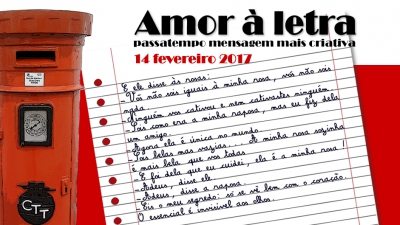 Amor à letra
passatempo mensagem mais criativa
14 fevereiro 2017
E ele disse às rosas:
- Vós não sois iguais à minha rosa, vós não sois
nada.
Ninguém vos cativou e nem cativastes ninguém.
- Sois como era a minha raposa, mas eu fiz dela
um amigo.
- Agora ela é única no mundo.
Sois belas mas vazias... A minha rosa sozinha
é mais bela que vós todas.
E foi dela que eu cuidei, ela é a minha rosa!
- Adeus, disse ele.
- Adeus, disse a raposa.
- Eis o meu segredo: só se vê bem com o coração.
O essencial é invisível aos olhos.
CTT